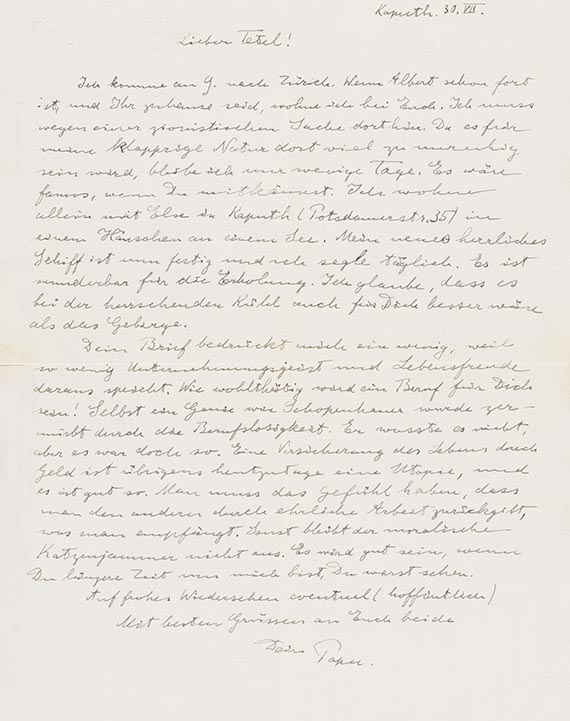 Kaputh. 30. VII.
Lieber Tetel!
Ich komme am 9. nach Zürich. Wenn Albert schon fort
ist, und Ihr zuhause seid, wohne ich bei Euch. Ich muss
wegen einer zionistischen Sache dorthin. Da es für
meine klapprige Natur dort viel zu unruhig
sein wird, bleibe ich nur wenige Tage. Es wäre
famos, wenn Du mitkämest. Ich wohne
allein mit Else in Kaputh (Potsdamerstr. 35) in
einem Häuschen an einem See. Mein neues herrliches
Schiff ist nun fertig und ich segle täglich. Es ist
wunderbar für die Erholung. Ich glaube, dass es
bei der herrschenden Kühl auch für Dich besser wäre
als das Gebirge.
Dein Brief bedrückt mich ein wenig, weil
so wenig Unternehmungsgeist und Lebensfreude
daraus spricht. Wie wohlthätig wird ein Beruf für Dich
sein! Selbst ein Genie wie Schopenhauer wurde zer-
mürbt durch die Berufslosigkeit. Er wusste es nicht,
aber es war doch so. Eine Versicherung des Lebens durch
Geld ist übrigens heutzutage eine Utopie, und
es ist gut so. Man muss das Gefühl haben, dass
man den anderen durch ehrliche Arbeit zurückgibt,
was man empfängt. Sonst bleibt der moralische
Katzenjammer nicht aus. Es wird gut sein, wenn
Du längere Zeit um mich bist, Du warst sehen.
Auf frohes Wiedersehen eventuel (hoffentlich)
Mit besten Grüssen an Euch beide
Dein Papa.